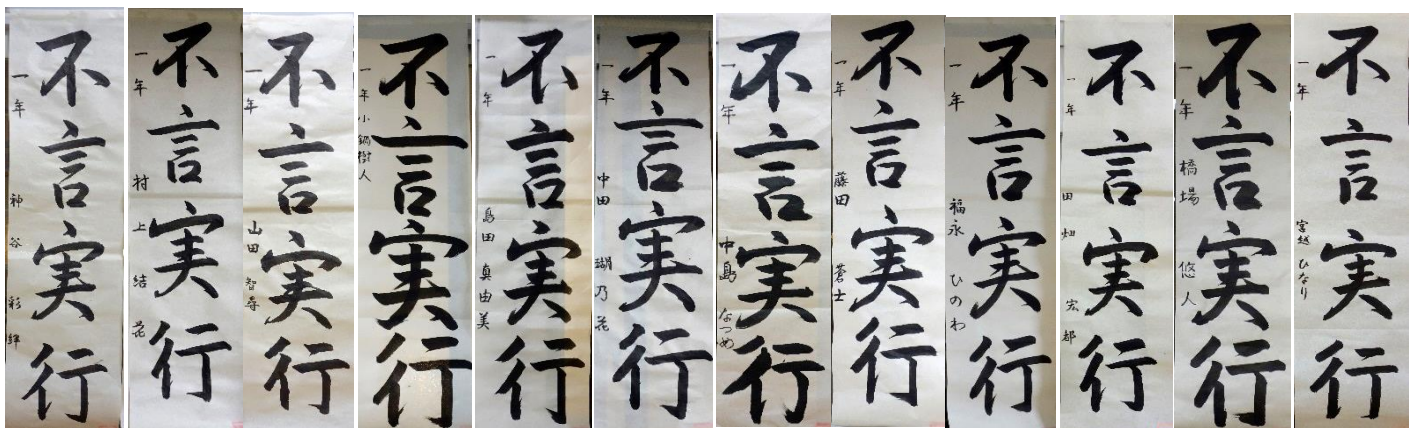 不言実行
一年 神谷 彩絆
不言実行
一年 村上 結花
不言実行
一年 山田 智尋
不言実行
一年 小鍋樹人
不言実行
一年 島田 真由美
不言実行
一年 中田 瑚乃花
不言実行
一年 中島 なつめ
不言実行
一年 藤田 蒼士
不言実行
一年 福永 ひのわ
不言実行
一年 田畑 宏都
不言実行
一年 橋場 悠人
不言実行
一年 宮越 ひなり